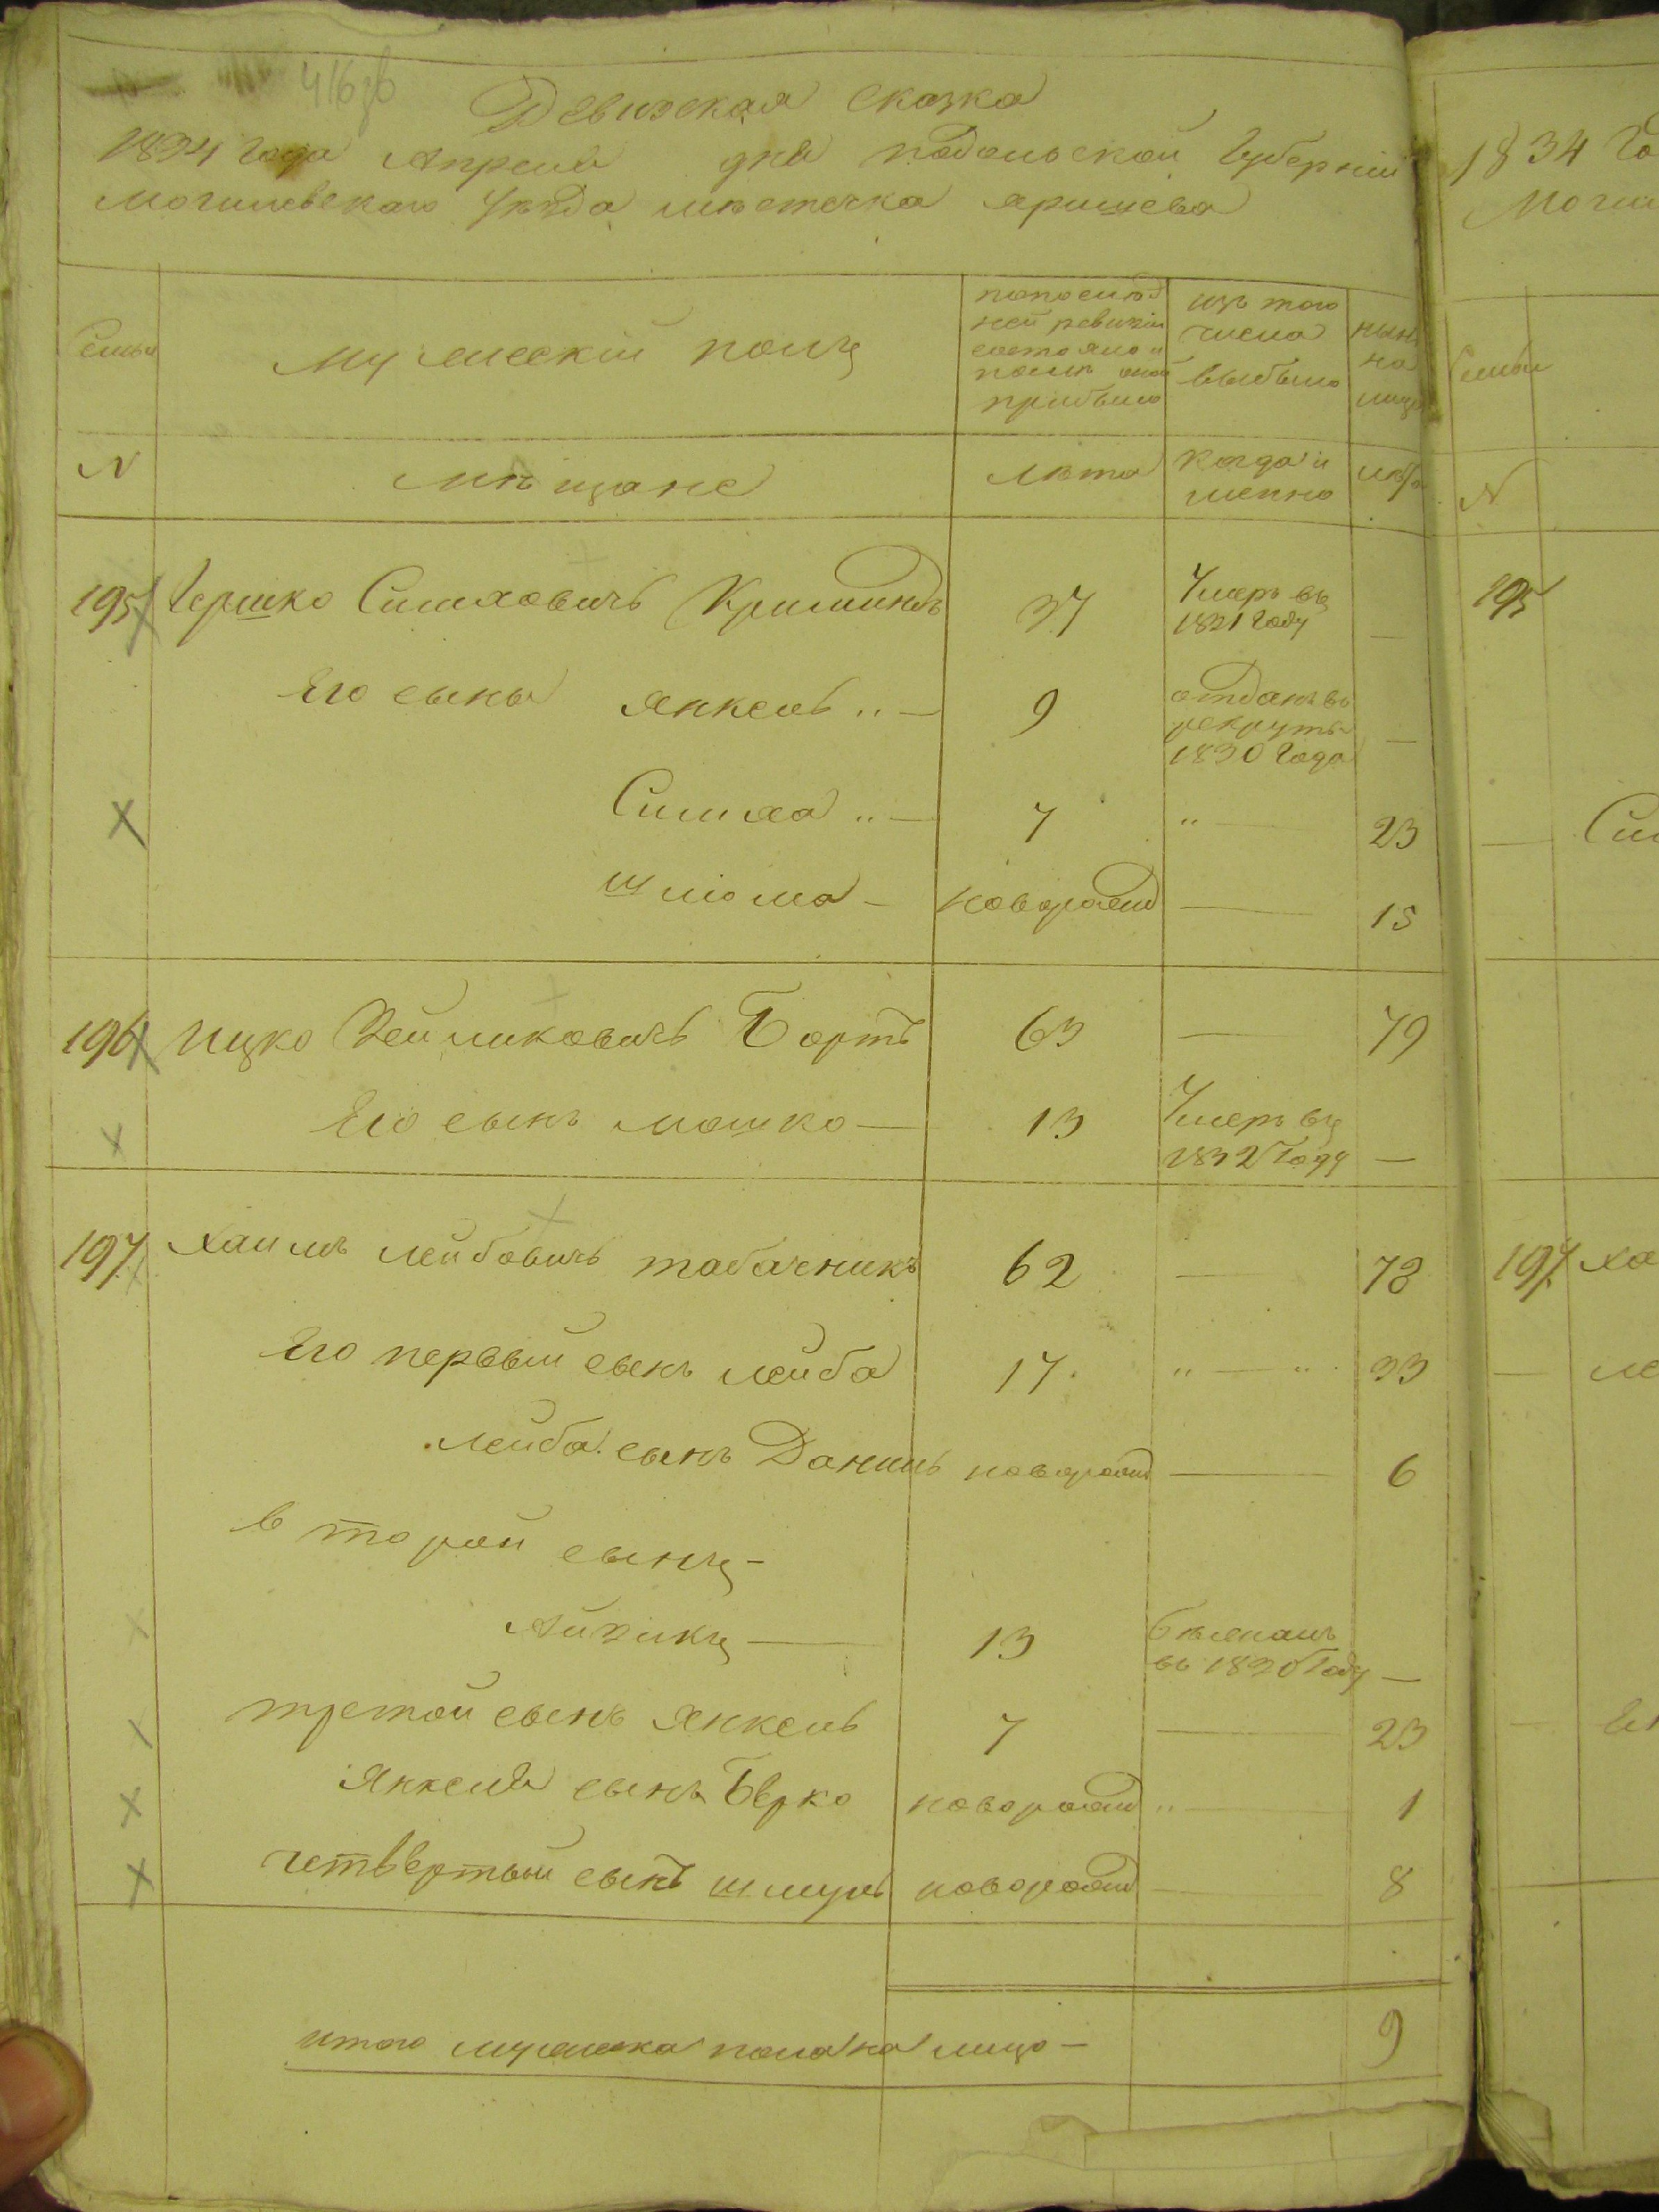 416 зв
Ревизская Сказка
1834 года Апреля дня Подольской Губерніи
Могилевскаго Уѣзда мѣстечка Яришева
Семьи
Мужескій полъ
По послѣд
ней ревизіи
состояло и
послѣ оной
прибыло
изъ того
числа
выбыло
нынѣ
на
лицо
N
Мѣщане
Лѣта
Когда и
менно
лѣта
195 Гершко Симховичъ Кришинъ 37 Умеръ въ
1821 Году —
Его сыны Янкель „ — 9 отданъ въ
рекруты
1830 Года —
Симха „ — 7 „ — 23
Шлiома — новорожд — 15
196 Ицко Зейликовичъ Бортъ 63 — 79
Его сынъ Мошко — 13 Умеръ въ
1832 Году —
197 Хаимъ Лейбовичъ Табачникъ 62 — 78
Его первый сынъ Лейба 17 „ — „ 33
Лейба сынъ Данилъ новорожд — 6
второй сынъ —
Айзикъ — 13 бѣжалъ
въ 1820 Году —
третой сынъ Янкель 7 — 23
Янкеля сынъ Берко новорожд „ — 1
четвертый сынъ Шмуль новорожд — 8
итого мужеска пола на лицо — 9
1834 Го
Моги
Семьи
N
195
Сим
197 Ха
Ле